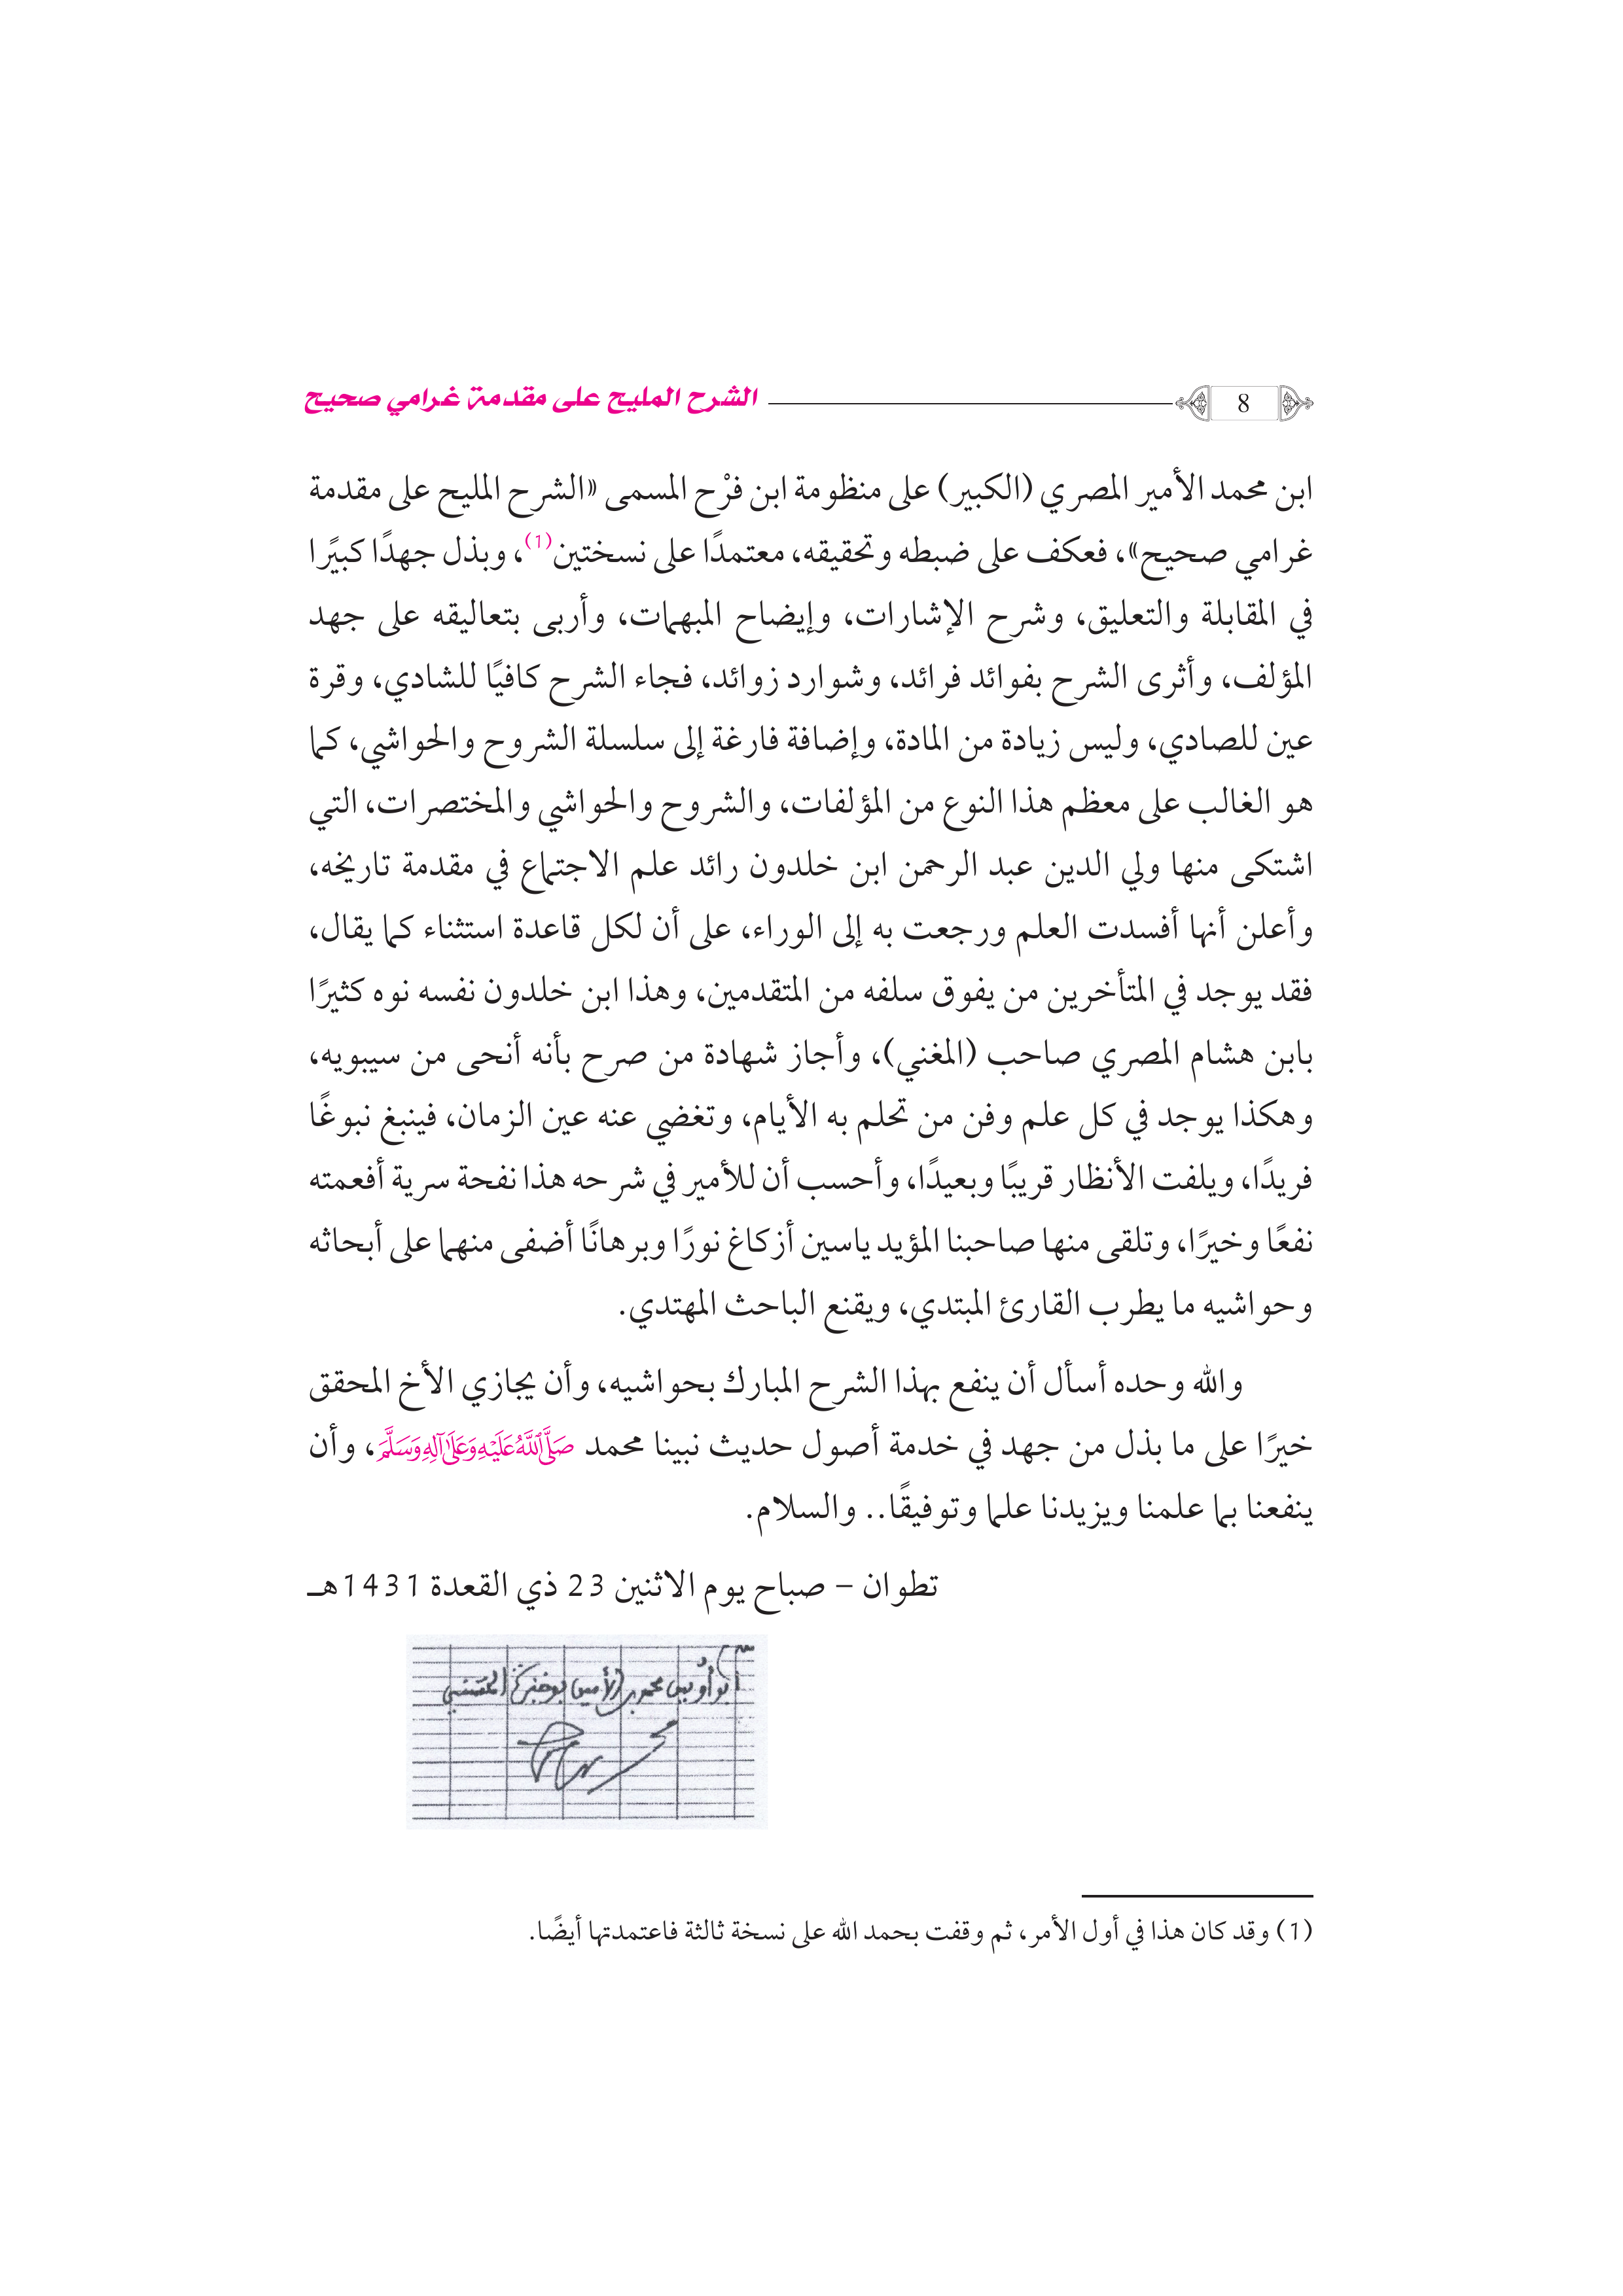 8
الشرح المليح على مقدمة غرامي صحيح
ابن محمد الأمير المصري (الكبير) على منظومة ابن فرْح المسمى «الشرح المليح على مقدمة
غرامي صحيح»، فعكف على ضبطه وتحقيقه، معتمدًا على نسختين(1)، وبذل جهدًا كبيًرا
في المقابلة والتعليق، وشرح الإشارات، وإيضاح المبهمات، وأربى بتعاليقه على جهد
المؤلف، وأثرى الشرح بفوائد فرائد، وشوارد زوائد، فجاء الشرح كافيًا للشادي، وقرة
عين للصادي، وليس زيادة من المادة، وإضافة فارغة إلى سلسلة الشروح والحواشي، كما
هو الغالب على معظم هذا النوع من المؤلفات، والشروح والحواشي والمختصرات، التي
اشتكى منها ولي الدين عبد الرحمن ابن خلدون رائد علم الاجتماع في مقدمة تاريخه،
وأعلن أنها أفسدت العلم ورجعت به إلى الوراء، على أن لكل قاعدة استثناء كما يقال،
فقد يوجد في المتأخرين من يفوق سلفه من المتقدمين، وهذا ابن خلدون نفسه نوه كثيرًا
بابن هشام المصري صاحب (المغني)، وأجاز شهادة من صرح بأنه أنحى من سيبويه،
وهكذا يوجد في كل علم وفن من تحلم به الأيام، وتغضي عنه عين الزمان، فينبغ نبوغًا
فريدًا، ويلفت الأنظار قريبًا وبعيدًا، وأحسب أن للأمير في شرحه هذا نفحة سرية أفعمته
نفعًا وخيرًا، وتلقى منها صاحبنا المؤيد ياسين أزكاغ نورًا وبرهانًا أضفى منهما على أبحاثه
وحواشيه ما يطرب القارئ المبتدي، ويقنع الباحث المهتدي.
والله وحده أسأل أن ينفع بهذا الشرح المبارك بحواشيه، وأن يجازي الأخ المحقق
خيرًا على ما بذل من جهد في خدمة أصول حديث نبينا محمد صَلَّى ٱللَّهُ عَلَيْهِ وَعَلَىٰ آلِهِ وَسَلَّمَ، وأن
ينفعنا بما علمنا ويزيدنا علما وتوفيقًا.. والسلام.
تطوان – صباح يوم الاثنين 23 ذي القعدة 1431هـ
أبو أويس محمد الأمين بوخبزة الحسني
(1) وقد كان هذا في أول الأمر، ثم وقفت بحمد الله على نسخة ثالثة فاعتمدتها أيضًا.